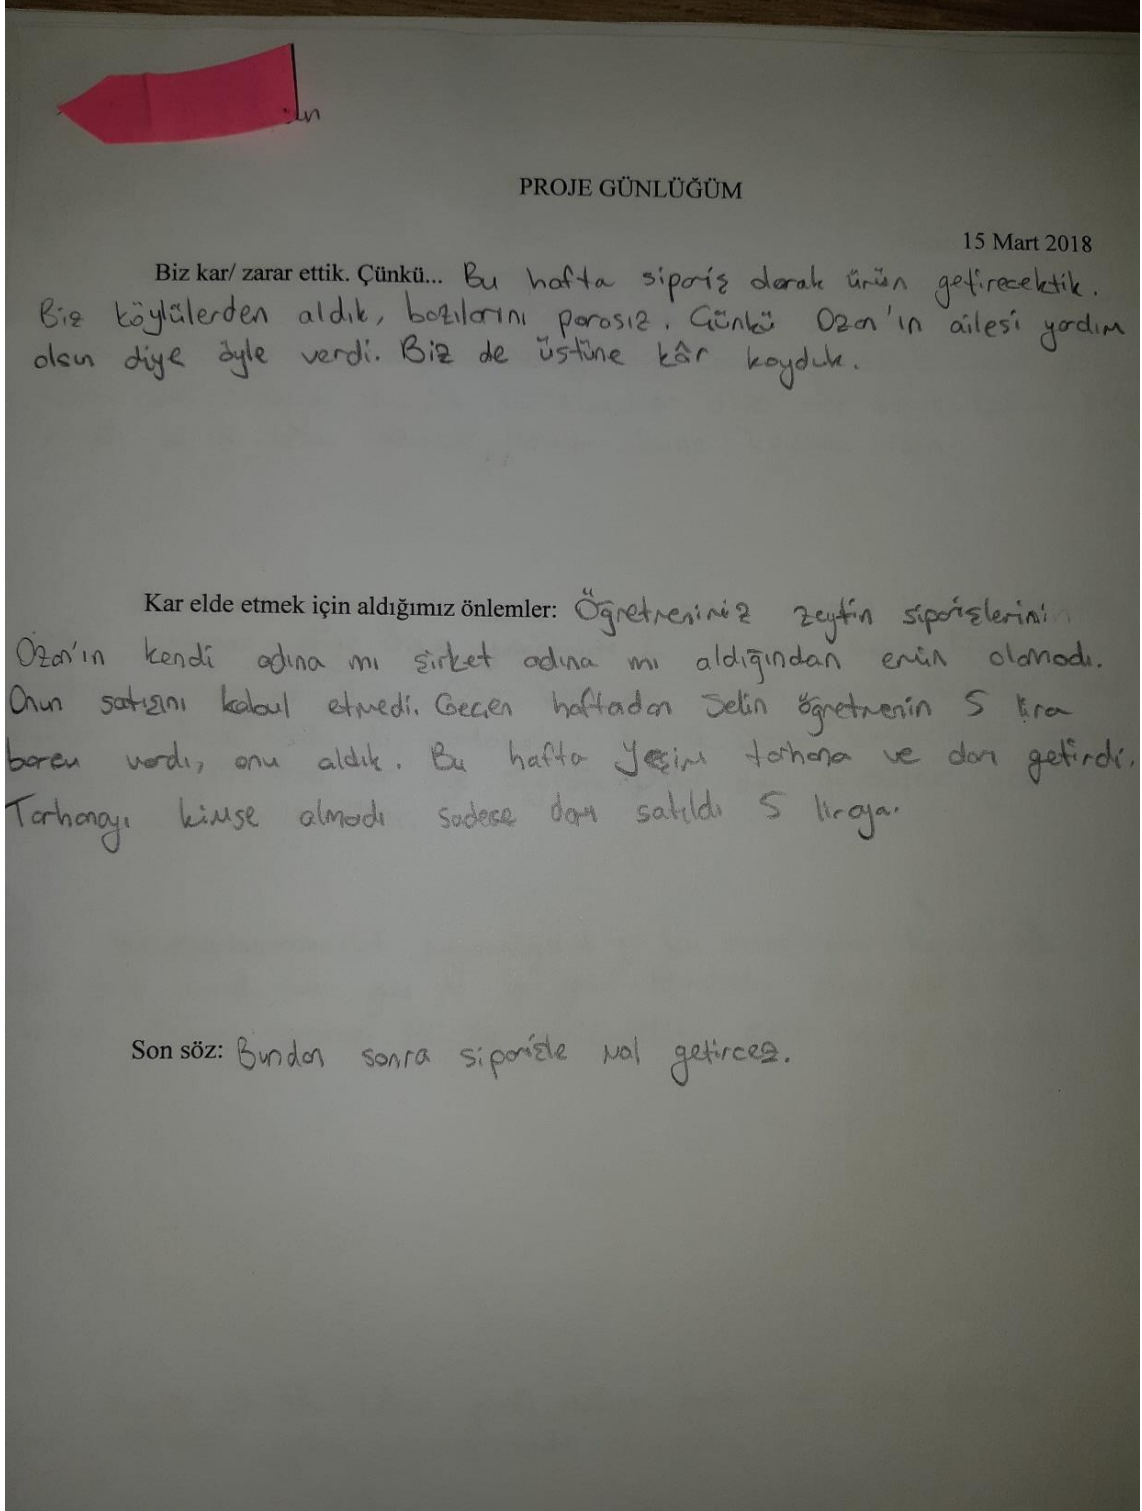 PROJE GÜNLÜĞÜM
15 Mart 2018
Biz kar/ zarar ettik. Çünkü... Bu hafta sipariş alarak ürün getirecektik.
Biz köylülerden aldık, bazılarını parasız. Çünkü Ozan'ın ailesi yardım
olsun diye öyle verdi. Biz de üstüne kâr koyduk.
Kar elde etmek için aldığımız önlemler: Öğretmenimiz zeytin siparişlerini
Ozan'ın kendi adına mı şirket adına mı aldığından emin olamadı.
Onun satışını kabul etmedi. Geçen haftadan Selin öğretmenin 5 lira
borcu vardı, onu aldık. Bu hafta Yeşim tarhana ve darı getirdi.
Tarhanayı kimse almadı sadece darı satıldı 5 liraya.
Son söz: Bundan sonra siparişle mal getircez.